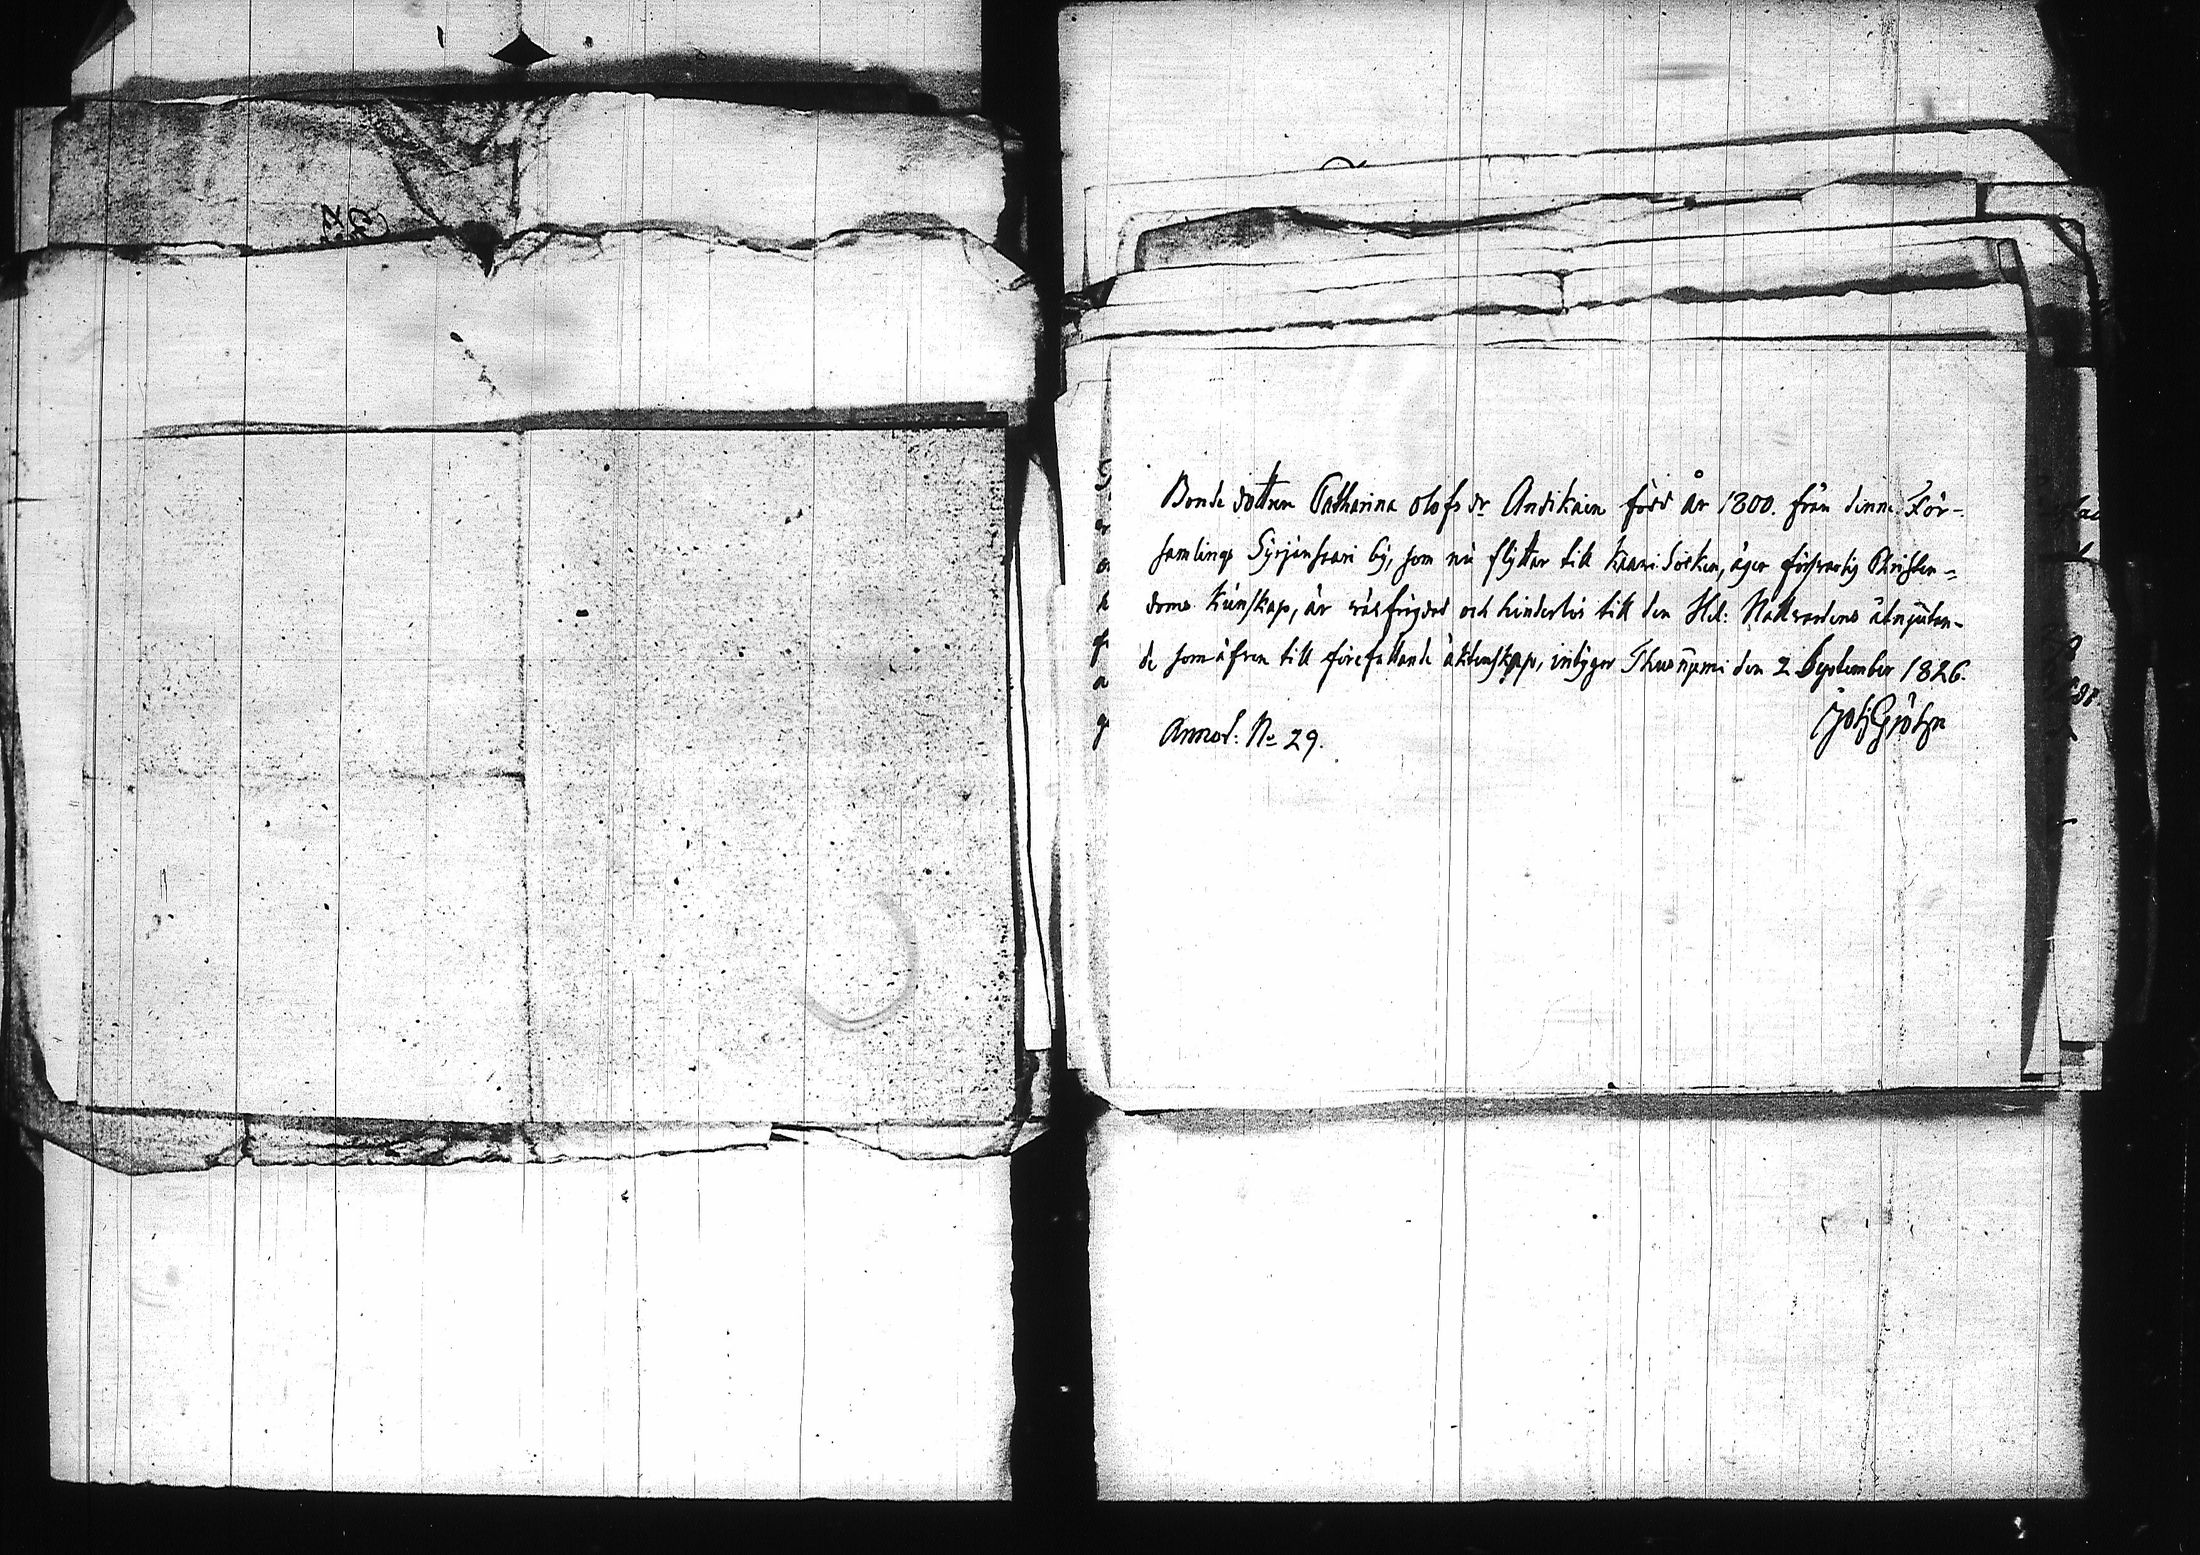 Bonde dottren Catharina Olofs dr Andikain född år 1800. från denna För-
samlings Syrjänsaari by, som nu flyttar till Kaavi Socken, äger försvarlig Christen-
doms Kunskap, är välfrejdad och hinderlös till den Hel: Nattvardens åtnjutan-
de som äfven till förefallande äktenskap, intygar Thusniemi den 2 September 1826.
Annot: No 29.